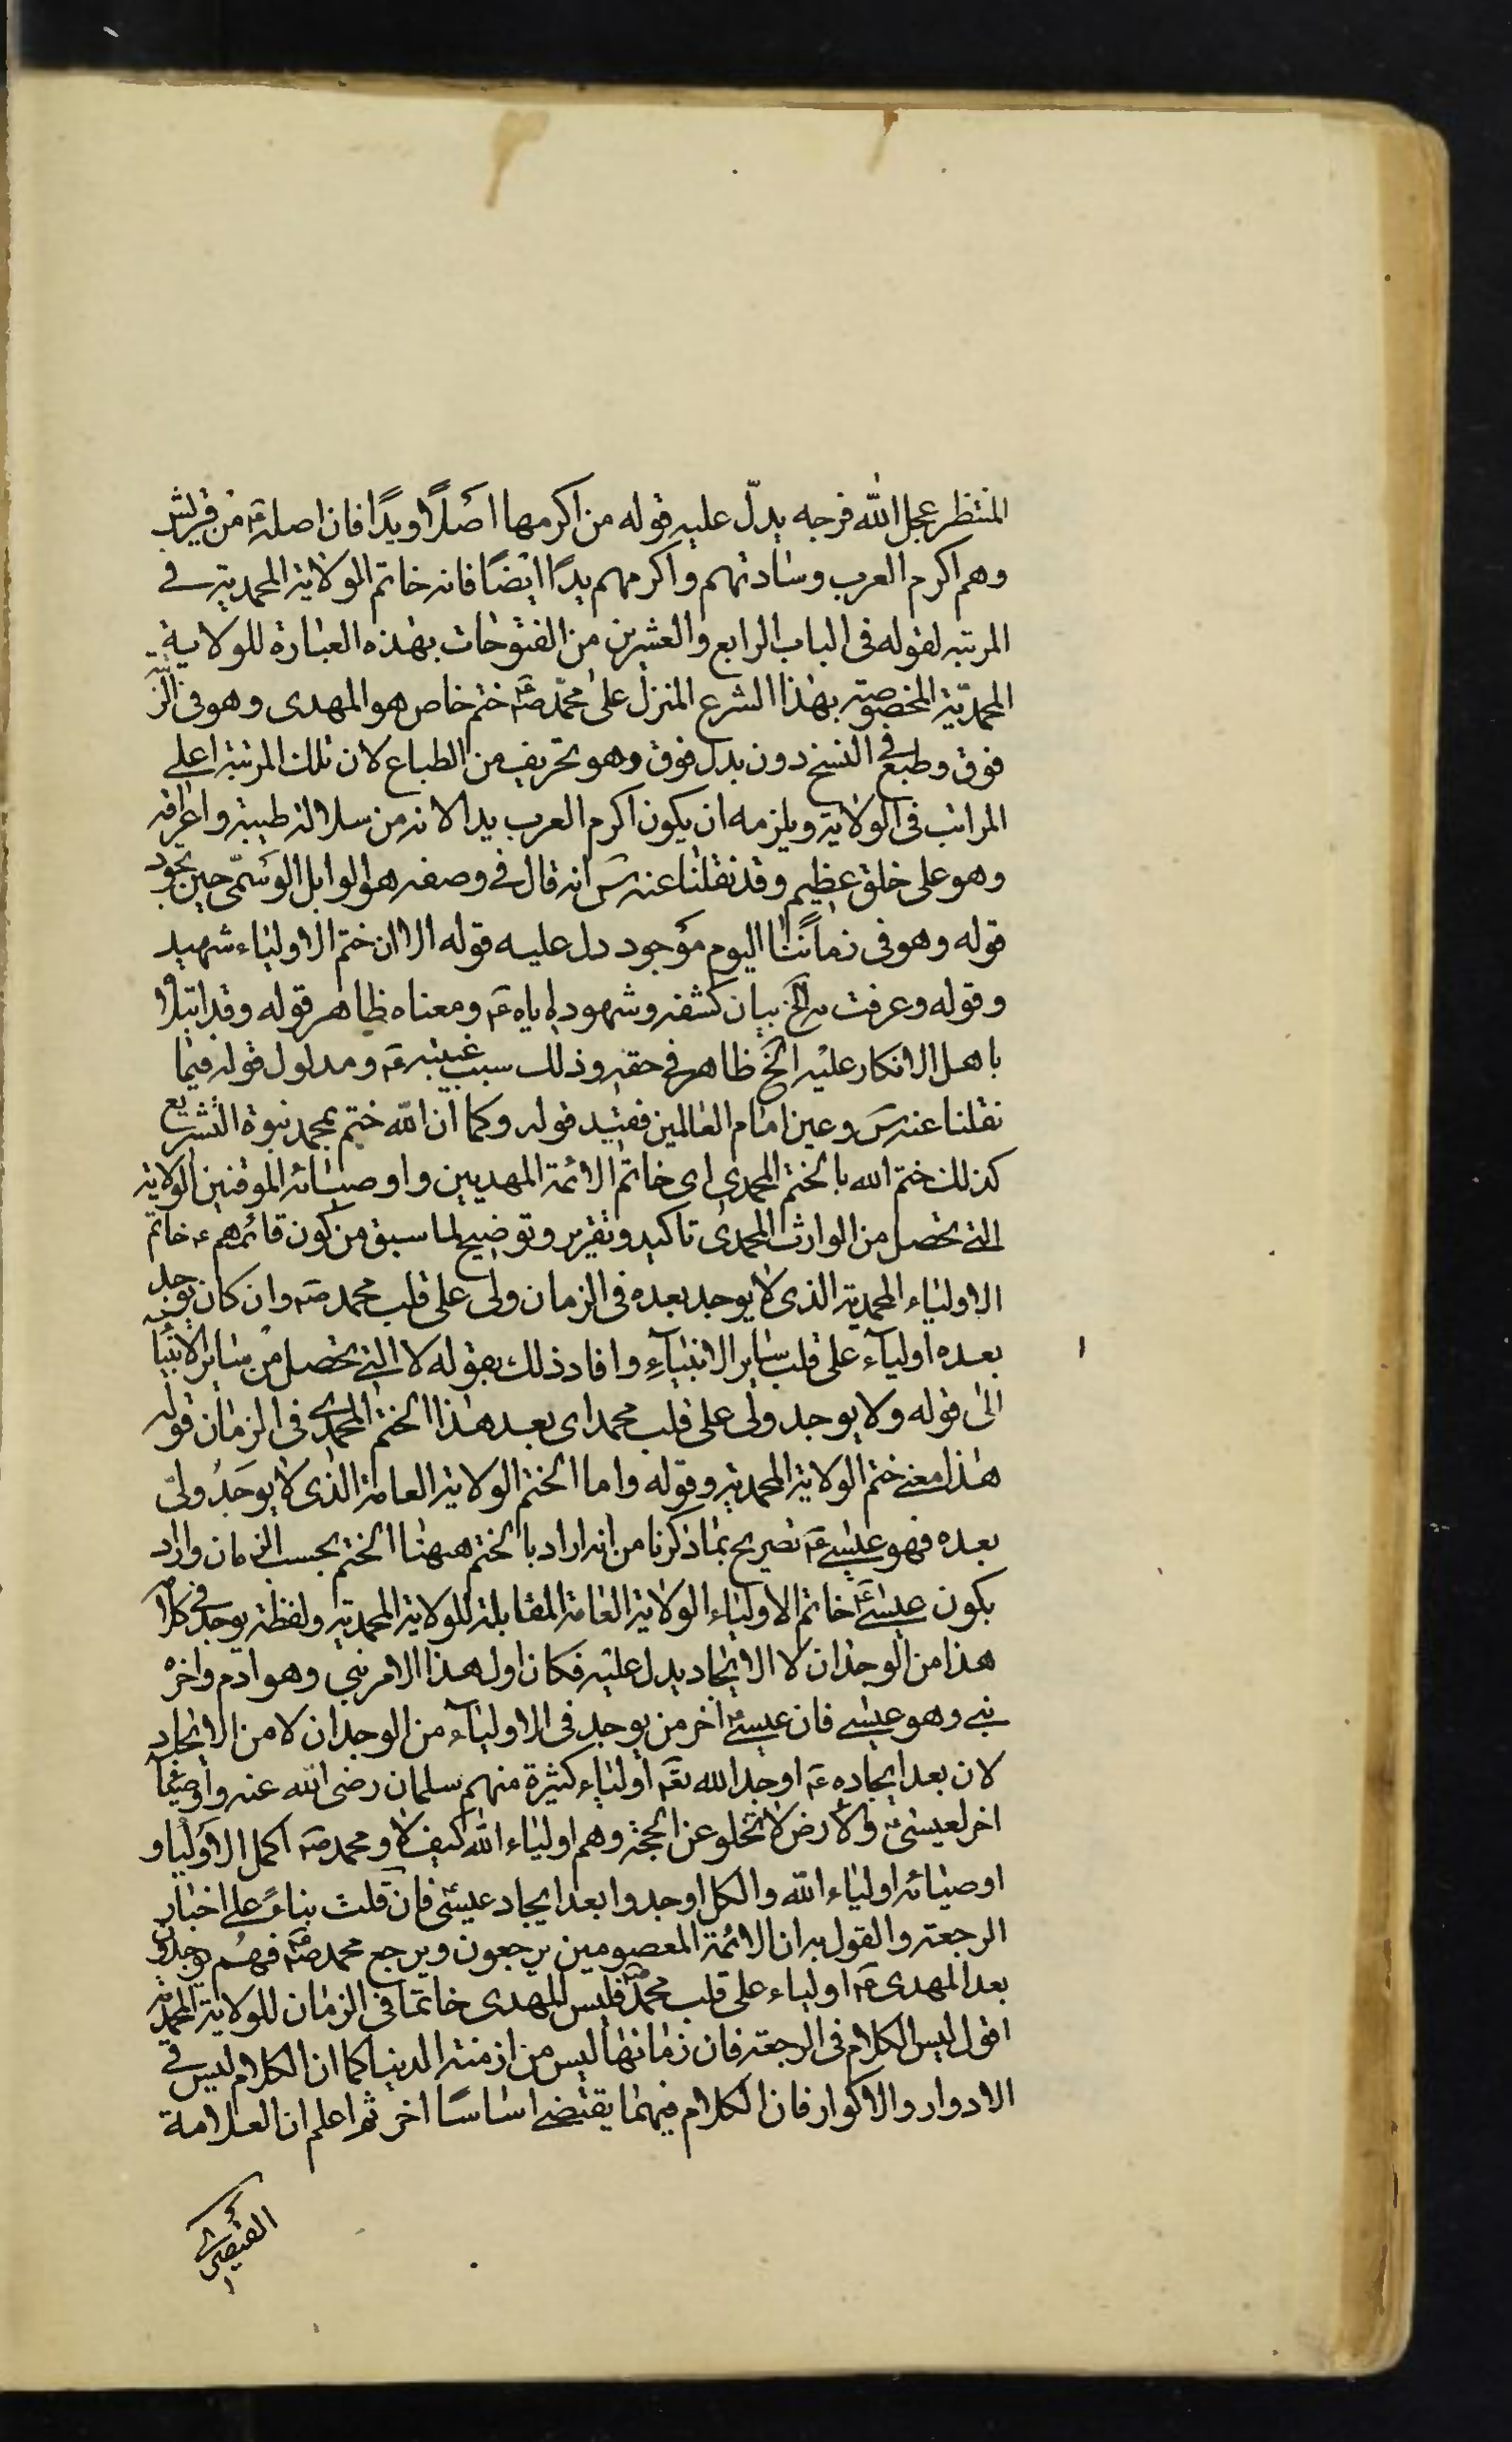 المنتظر عجل الله فرجه يدلّ عليه قوله من اكرمها اصلاً ويدًا فان اصله ع من قريش
وهم اكرم العرب وسادتهم واكرمهم يدًا ايضًا فانه خاتم الولاية المحمدية فى
المرتبه لقوله فى الباب الرابع والعشرين من الفتوحات بهذه العبارة للولاية
المحمديّة المخصوصة بهذا الشرع المنزل على محمّد ص ختم خاص هو المهدى وهو فى الرتبة
فوق وطبع فى النسخ دون بدل فوق وهو تحريف من الطباع لان تلك المرتبة اعلى
المراتب فى الولاية ويلزمه ان يكون اكرم العرب يدا لانه من سلالته طيبته واعراقه
وهو على خلق عظيم وقد نقلنا عنه س انه قال فى وصفه هو الوابل الوسمّى حين يجود
قوله وهو فى زماننا اليوم موجود دل عليه قوله الا ان ختم الاولياء شهيد
وقوله وعرفت به الخ بيان كشفه وشهوده اياه ع ومعناه ظاهر قوله وقد ابتلاه
باهل الانكار عليه الخ ظاهر فى حقه وذلك سبب غيبته ع ومدلول قوله فيما
نقلنا عنه س وعين امام العالمين فقيد قوله وكما ان الله ختم بمحمد نبوة التشريع
كذلك ختم الله بالختم المحمدى اى خاتم الائمة المهديين واوصيائه الموقنين الولاية
التى تحصل من الوارث المحمدى تاكيد وتقرير وتوضيح لما سبق من كون قائمهم ع خاتم
الاولياء المحمدية الذى لا يوجد بعده فى الزمان ولى على قلب محمد ص وان كان يوجد
بعده اولياء على قلب ساير الانبياء وافاد ذلك بقوله لا التى تحصل من ساير الانبياء
الى قوله ولا يوجد ولى على قلب محمد اى بعد هذا الختم المحمدى فى الزمان قوله
هذا معنى ختم الولاية المحمدية وقوله واما الختم الولاية العامة الذى لا يوجَدُ ولىّ
بعده فهو عيسى ع تصريح بما ذكرنا من انه اراد بالختم ههنا الختم بحسب الزمان واراد
بكون عيسى ع خاتم الاولياء الولاية العامة المقابلة للولاية المحمدية ولفظة يوجد فى كلام
هذا من الوجدان لا الايجاد يدل عليه فكان اول هذا الامر نبى وهو ادم واخره
نبى وهو عيسى فان عيسى ع اخر من يوجد فى الاولياء من الوجدان لا من الايجاد
لان بعد ايجاده ع اوجد الله تعم اولياء كثيرة منهم سلمان رضى الله عنه واوصياء
اخر لعيسى ع والارض لا تخلو عن الحجة وهم اولياء الله كيف لا ومحمد ص اكمل الاولياء و
اوصيائه اولياء الله والكل اوجدوا بعد ايجاد عيسى فان قلت بناءً على اخبار
الرجعة والقول به ان الائمة المعصومين يرجعون ويرجع محمد ص فهُم يوجدون
بعد المهدى ع اولياء على قلب محمّد ص فليس للمهدى خاتما فى الزمان للولاية المحمدية
اقول ليس الكلام فى الرجعة فان زمانها ليس من ازمنة الدنيا كما ان الكلام ليس فى
الادوار والاكوار فان الكلام فيهما يقتضى اساسًا اخر ثم اعلم ان العلامة
القيصرى